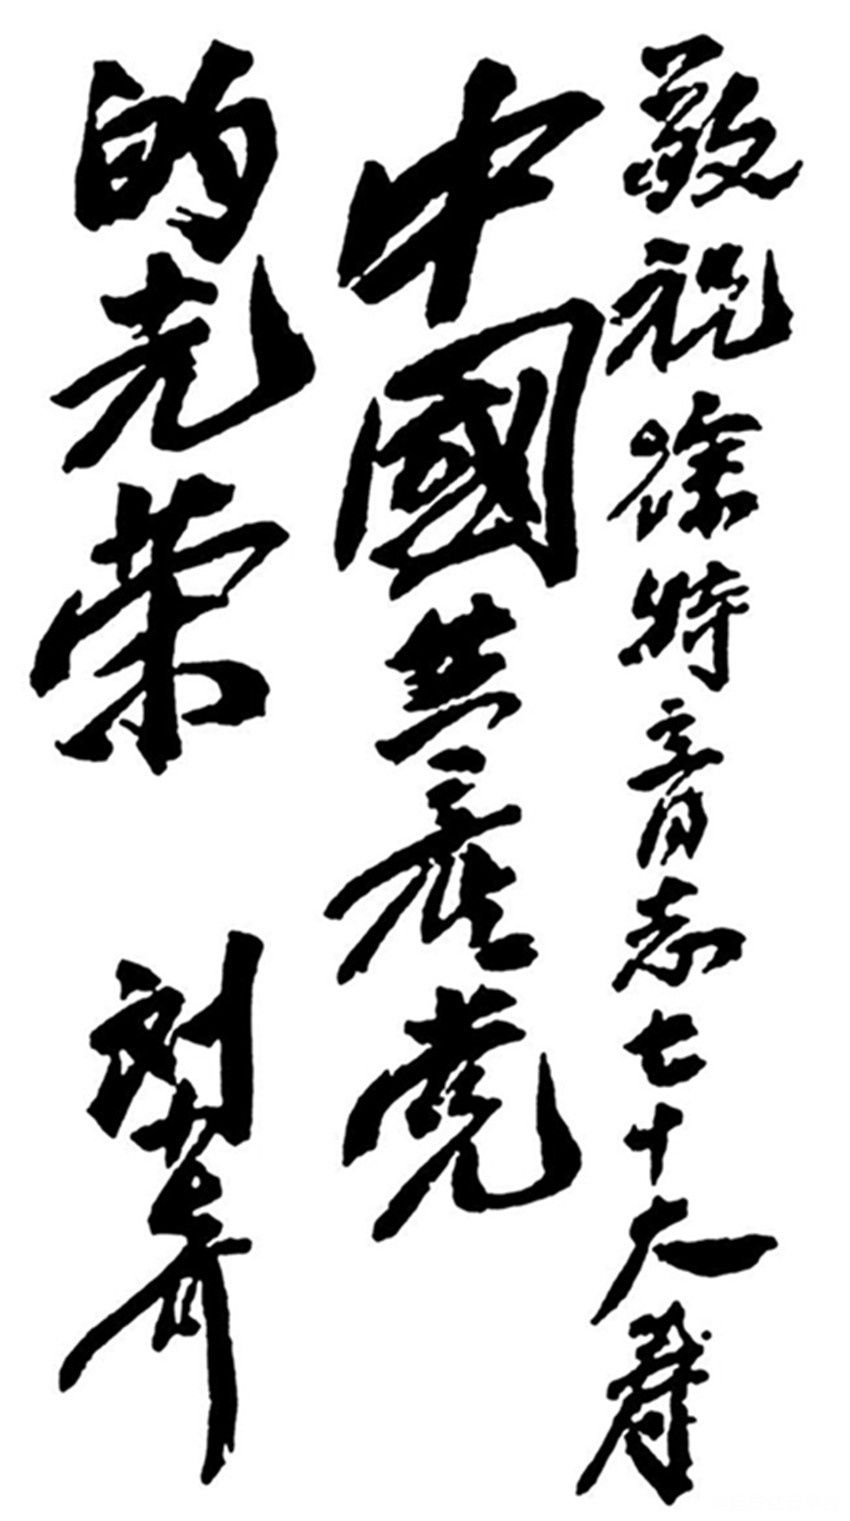 敬祝徐特立同志七十大寿
中國共産党
的光荣
刘少奇